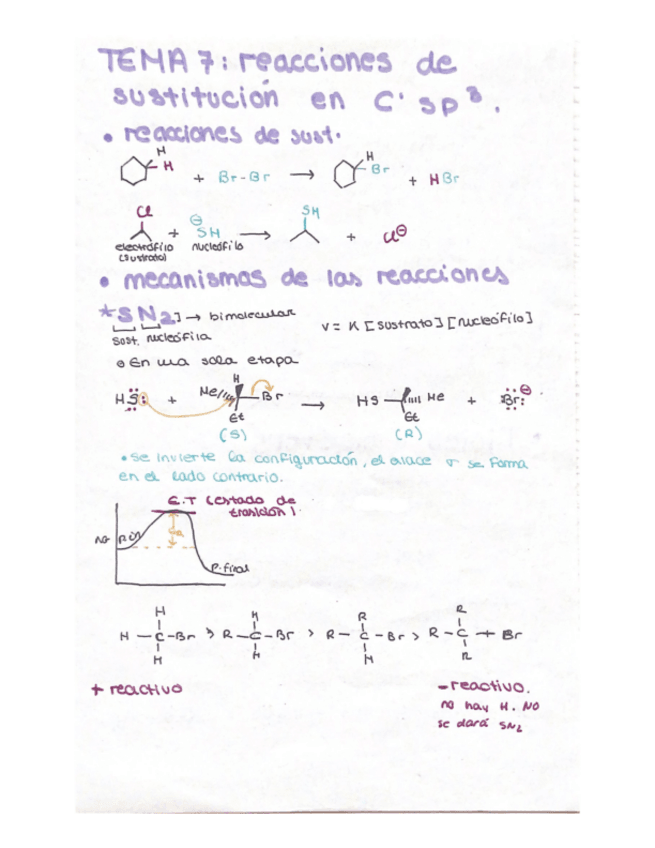 TEMA 7: reacciones de
sustitución en C' sp³.
• reacciones de sust.
H
H + Br-Br → H Br + HBr
Cl + ⊖SH → SH + Cl⊖
electrófilo nucleófilo
(sustrato)
• mecanismos de las reacciones
*SN2] → bimolecular
sust. nucleófila
V = K [sustrato] [nucleófilo]
En una sola etapa
H
HS: + Me Br → HS Me + :Br:⊖
Et Et
(S) (R)
• se invierte la configuración, el enlace σ se forma
en el lado contrario.
E.T (estado de
transición).
P. final
H H R R
H — C — Br > R — C — Br > R — C — Br > R — C — Br
H H H R
+ reactivo
- reactivo.
no hay H. NO
se dará SN2